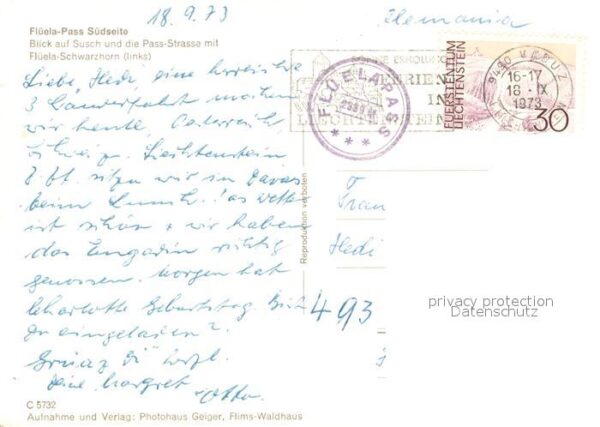 18.9.73
Alemania
Flüela-Pass Südseite
Blick auf Susch und die Pass-Strasse mit
Flüela-Schwarzhorn (links)
Liebe Hedi, eine herrliche
3 Länderfahrt machen
wir heute, Österreich
Schweiz, Liechtenstein
z. Zt. sitzen wir in Davos
beim Lunch. Das Wetter
ist schön & wir haben
das Engadin richtig
genossen. Morgen hat
Charlotte Geburtstag. Bist
Du eingeladen?
Deine Margret
Otto
C 5732
Aufnahme und Verlag: Photohaus Geiger, Flims-Waldhaus
Reproduktion verboten
FERIEN
IN
LIECHTENSTEIN
FLÜELAPASS
9490 VADUZ
16-17
18.-IX
1973
FÜRSTENTUM
LIECHTENSTEIN
30
Frau
Hedi
493
privacy protection
Datenschutz